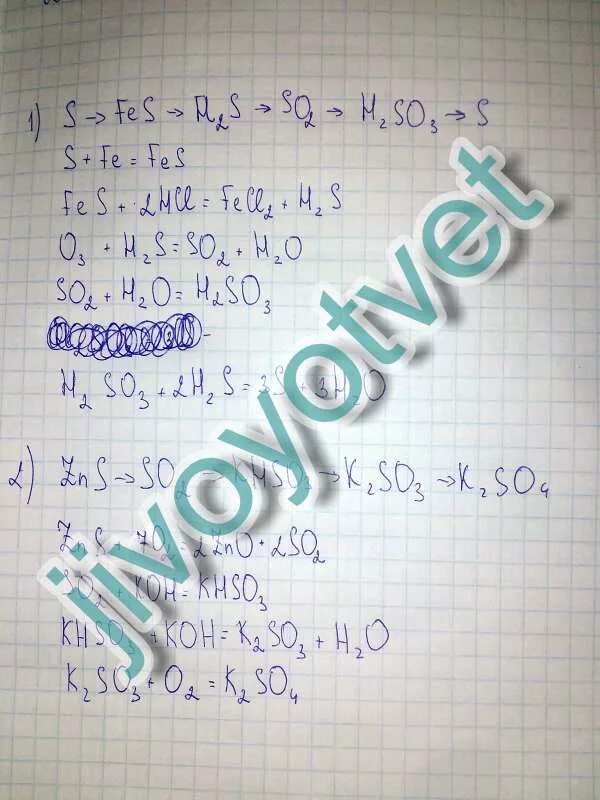 1) S → FeS → H₂S → SO₂ → H₂SO₃ → S
S + Fe = FeS
FeS + 2HCl = FeCl₂ + H₂S
O₃ + H₂S = SO₂ + H₂O
SO₂ + H₂O = H₂SO₃
H₂SO₃ + 2H₂S = 3S + 3H₂O
2) ZnS → SO₂ → KHSO₃ → K₂SO₃ → K₂SO₄
ZnS + 7O₂ = 2ZnO + 2SO₂
SO₂ + KOH = KHSO₃
KHSO₃ + KOH = K₂SO₃ + H₂O
K₂SO₃ + O₂ = K₂SO₄
jivoyotvet